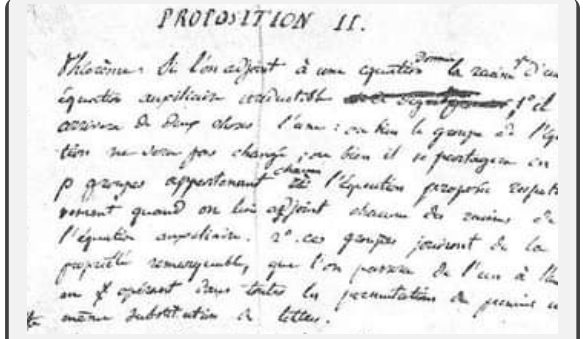 PROPOSITION II.
Théorème. Si l'on adjoint à une équation donnée la racine r d'une
équation auxiliaire irréductible 1° il
arrivera de deux choses l'une: ou bien le groupe de l'équa
tion ne sera pas changé; ou bien il se partagera en
p groupes appartenant chacun à l'équation proposée respecti
vement quand on lui adjoint chacune des racines de
l'équation auxiliaire. 2° ces groupes jouiront de la
propriété remarquable, que l'on passera de l'un à l'au
en opérant dans toutes les permutations du premier u
même substitution de lettres.